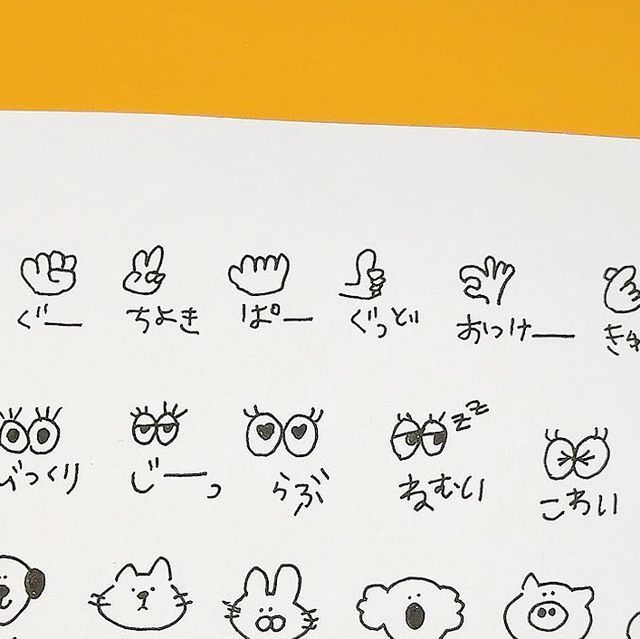 ぐー ちょき ぱー ぐっど おっけー
びっくり じーっ らぶ zz ねむい こわい